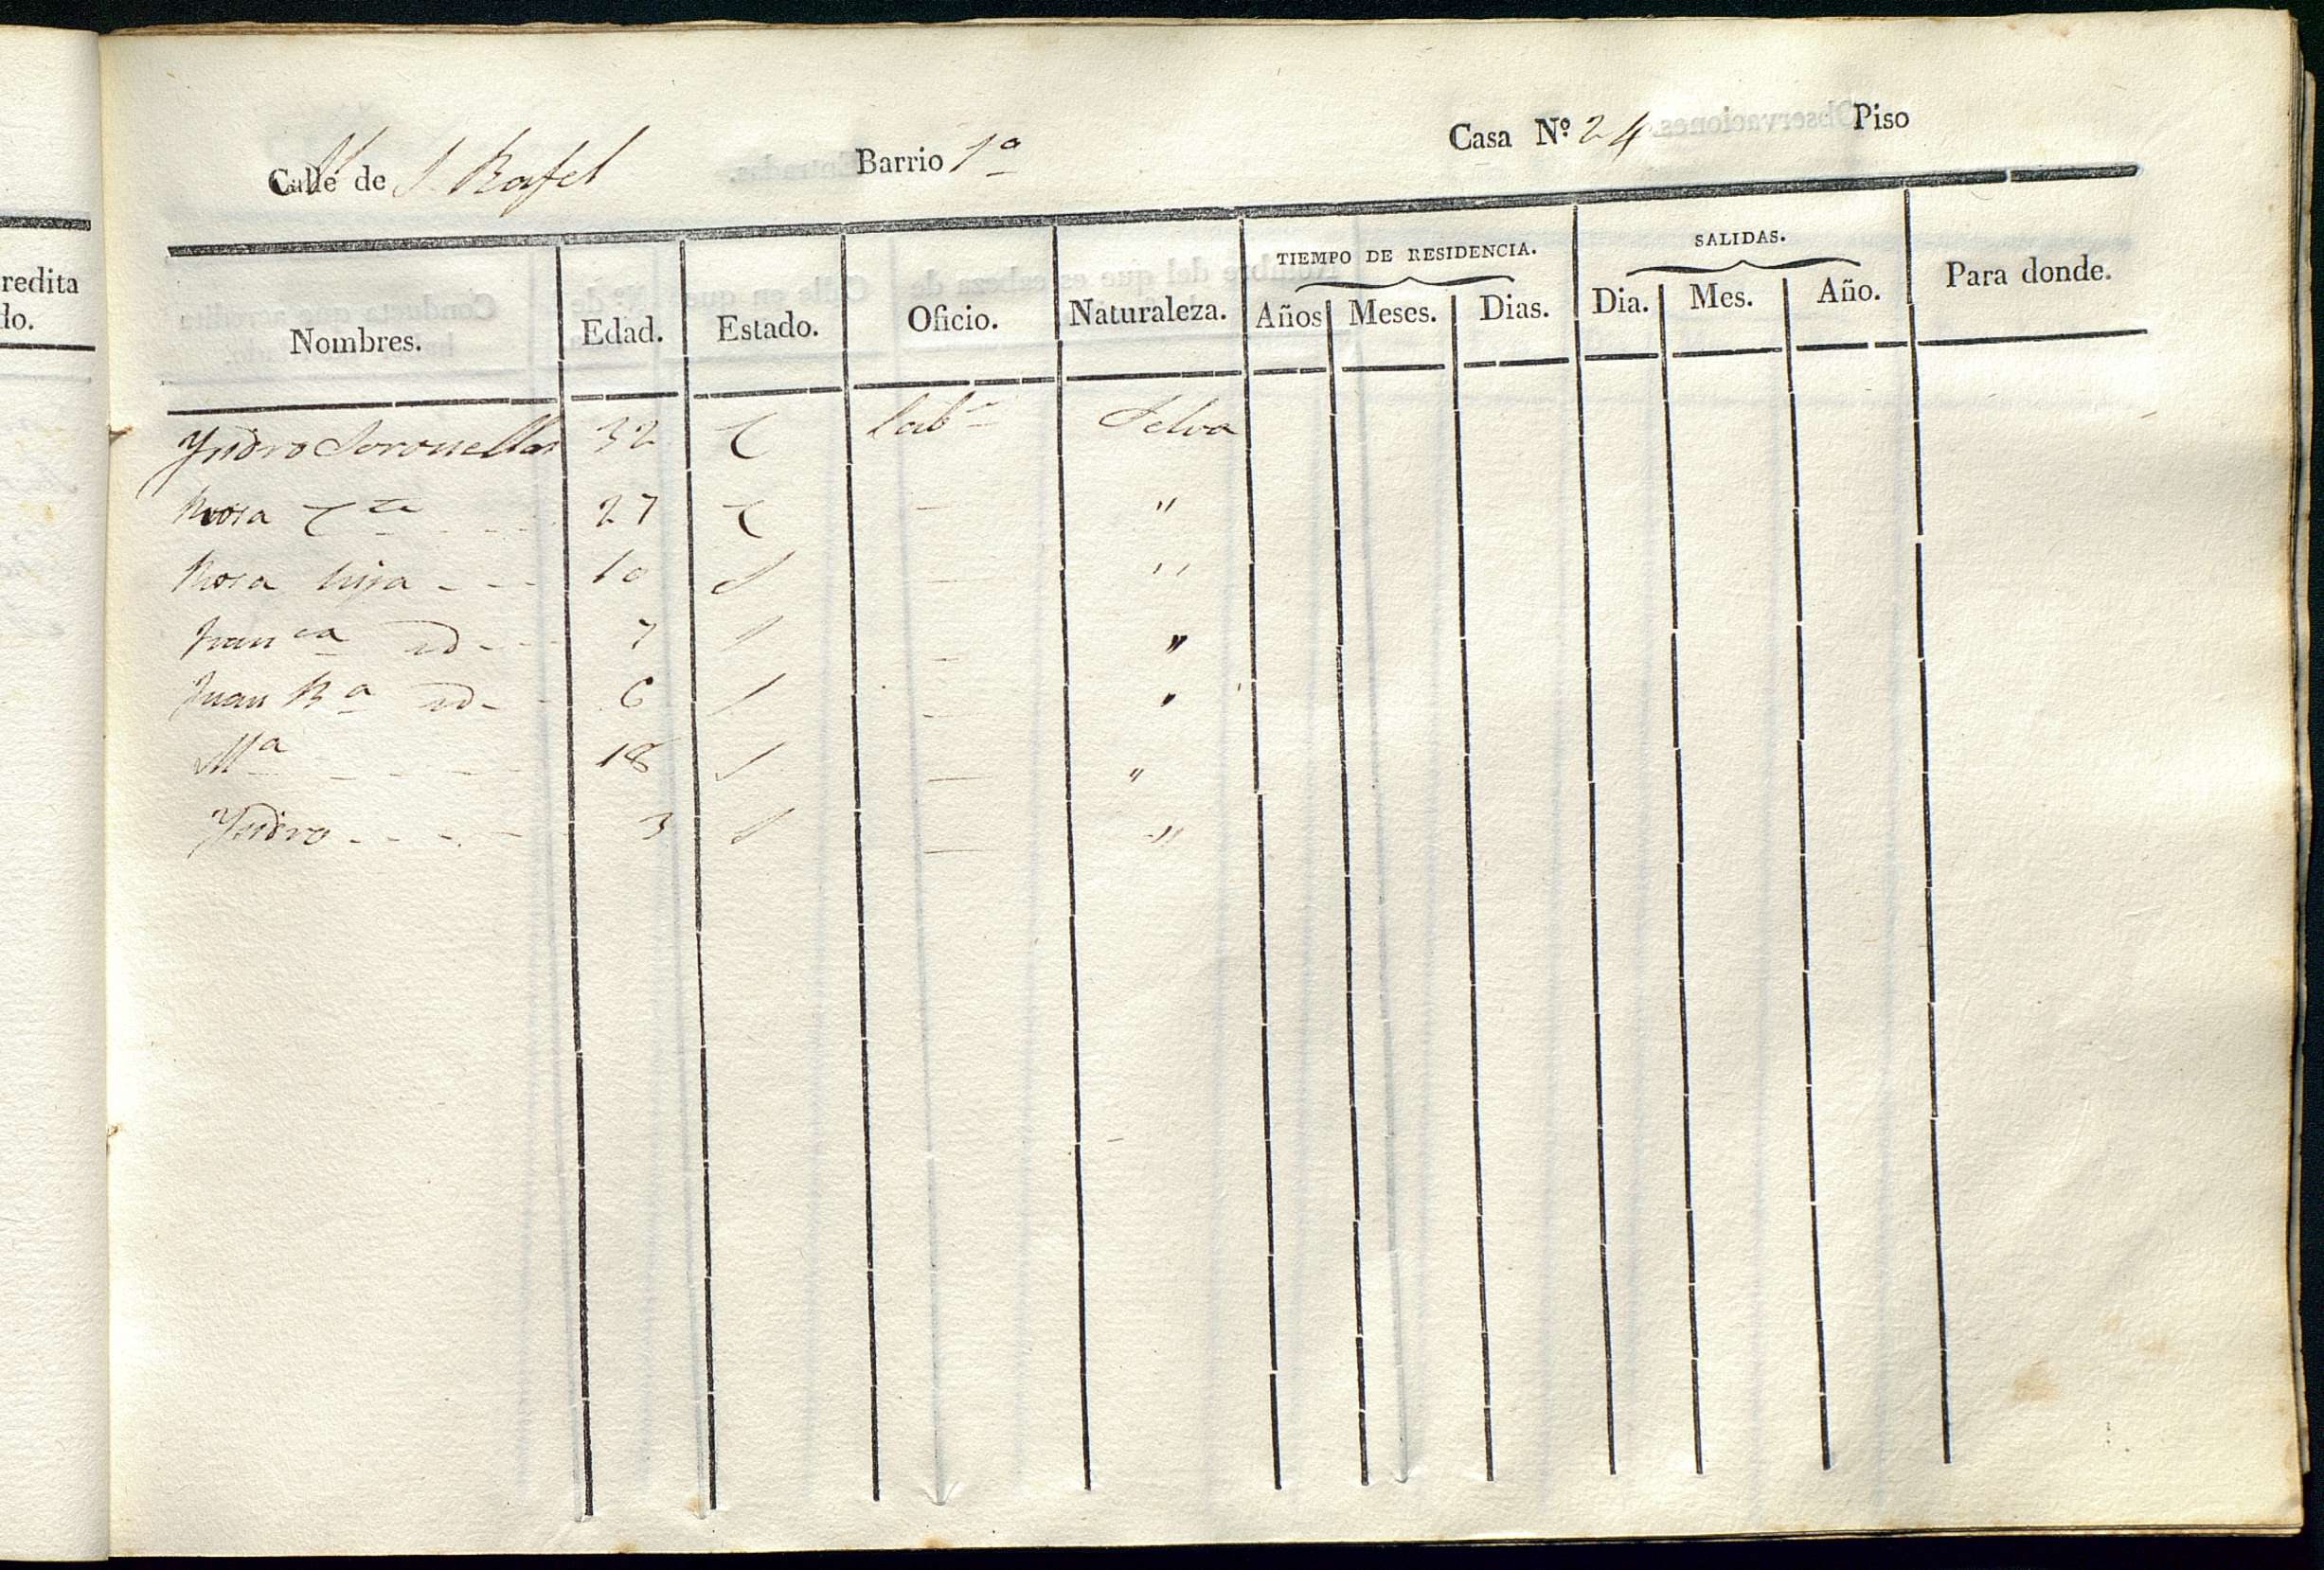 Calle de S. Rafel Barrio 1ª Casa Nº 24 Piso
redita
do.
TIEMPO DE RESIDENCIA. SALIDAS.
Nombres. Edad. Estado. Oficio. Naturaleza. Años Meses. Dias. Dia. Mes. Año. Para donde.
Ysidro Soronellas 32 C Labr Selva
Rosa Cta - - 27 C — "
Rosa hija - - - 10 S — "
Franca id - - 7 S — "
Juan Ba id - - 6 S — "
Ma - - - - 18 S — "
Ysidro - - - - 3 S — "